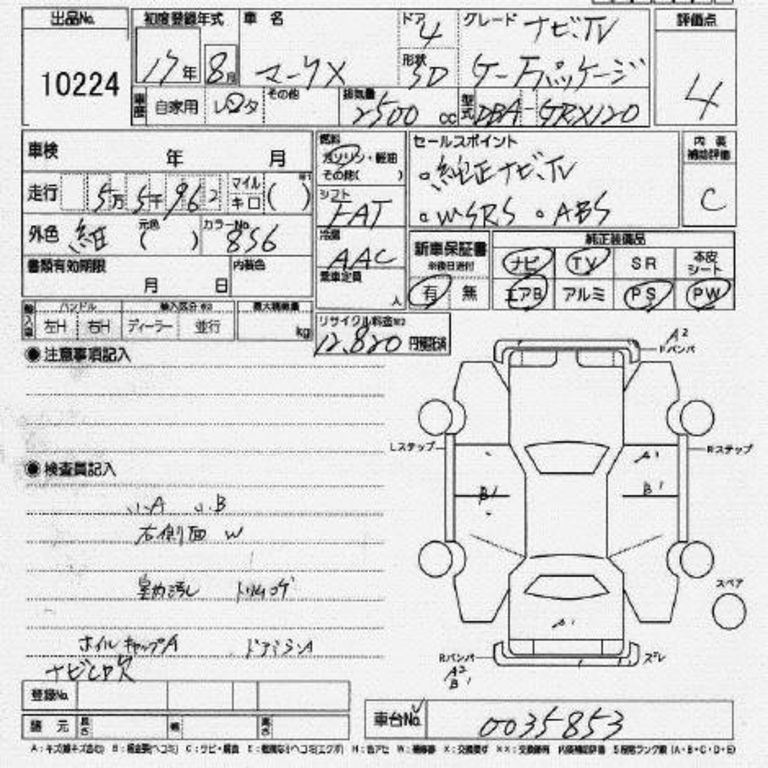 出品No. 初度登録年式 車名 ドア グレード ナビ.TV 評価点
10224 17年 8月 マークX 4 形状 SD 4
車歴 自家用 レンタ その他 排気量 2500 cc 型式 DBA-GRX120
車検 年 月 燃料 ガソリン・軽油 その他( ) セールスポイント 内装補助評価
走行 5万5千962 マイル キロ ( ) シフト FAT ・純正ナビ.TV C
外色 紺 元色 ( ) カラーNo. 8S6 冷房 AAC ・WSRS ・ABS
書類有効期限 月 日 内装色 乗車定員 人
新車保証書 ※後日送付 有 無 純正装備品
ナビ TV SR 本皮シート
エアB アルミ PS PW
輸入車 ハンドル 左H 右H 輸入区分 ディーラー 並行 最大積載量 kg
リサイクル料金 12,820 円預託済
◉ 注意事項記入
A2 Fバンパ
Lステップ Rステップ
A1
B1 B1
◉ 検査員記入
小A 小B
右側面 W
室内汚れ トリムコゲ
スペア
A1
ホイルキャップA ドアミラA
ナビCD欠
Rバンパ A2 B1 ズレ
登録No.
諸元 長さ 幅 高さ
車台No. 0035853